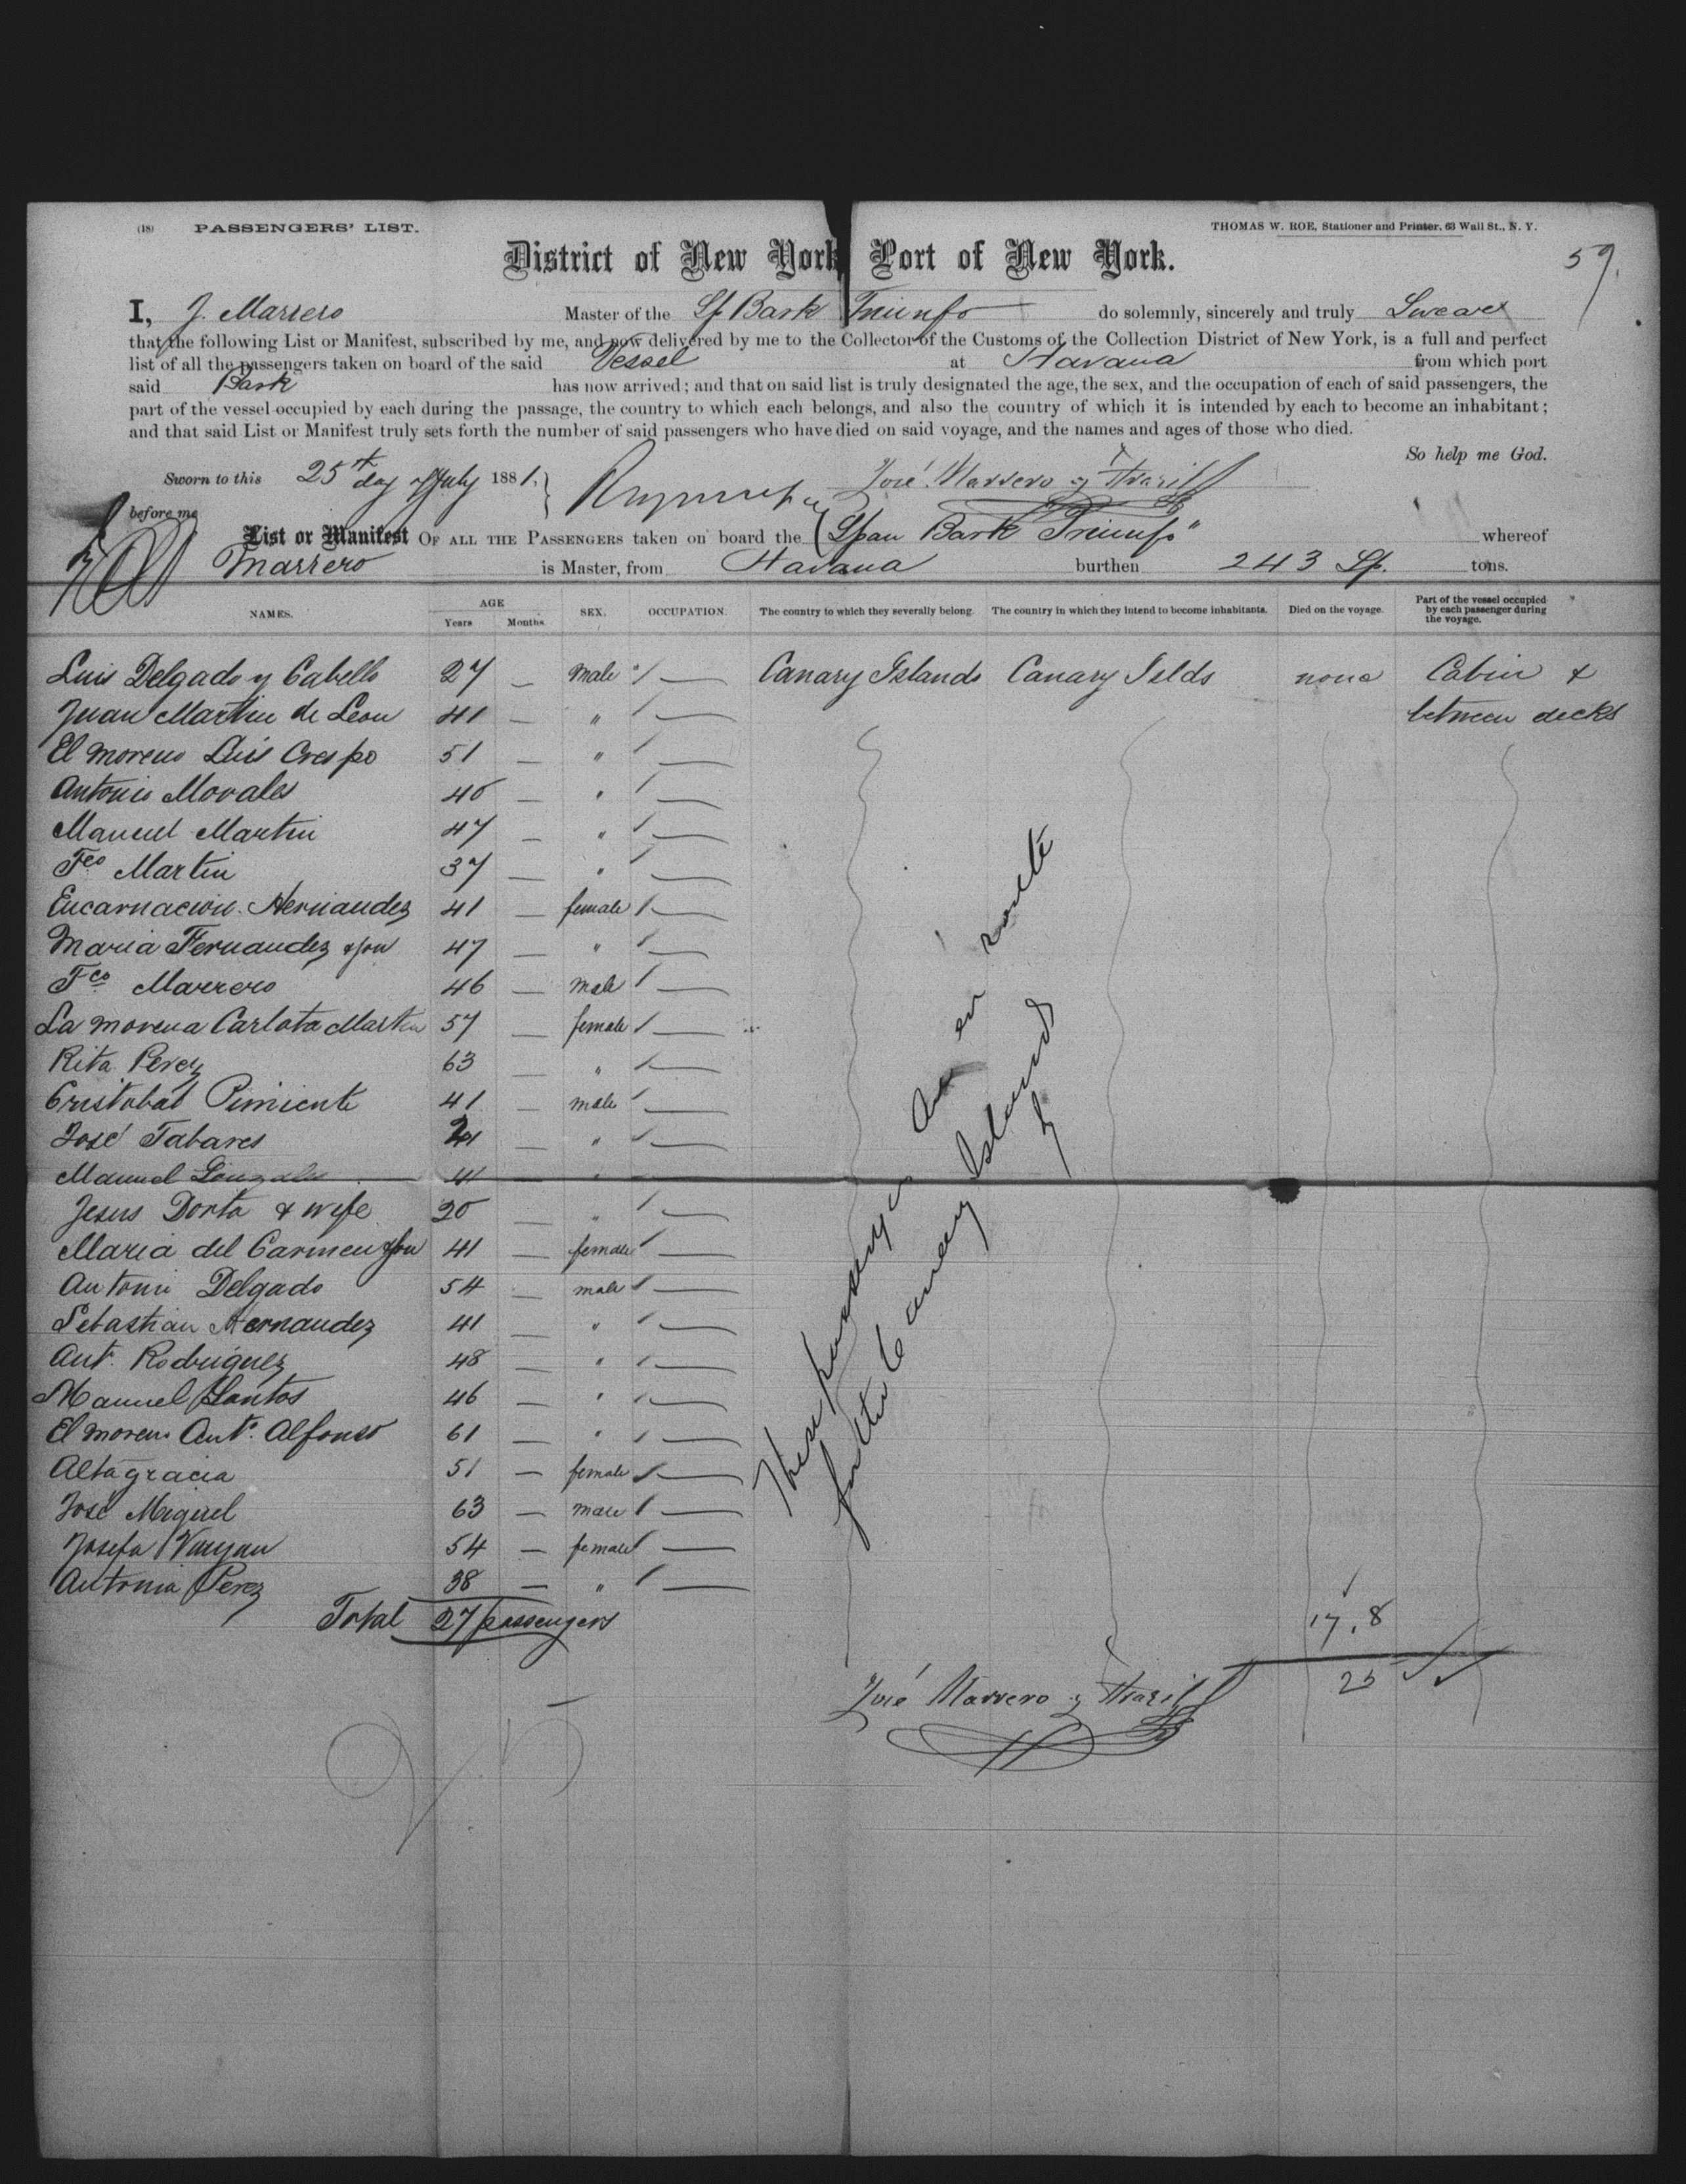 (18) PASSENGERS' LIST.
THOMAS W. ROE, Stationer and Printer, 63 Wall St., N. Y.
59.
District of New York Port of New York.
I, J. Marrero Master of the Sp Bark Triunfo do solemnly, sincerely and truly Swear
that the following List or Manifest, subscribed by me, and now delivered by me to the Collector of the Customs of the Collection District of New York, is a full and perfect
list of all the passengers taken on board of the said Vessel at Havana from which port
said Bark has now arrived; and that on said list is truly designated the age, the sex, and the occupation of each of said passengers, the
part of the vessel occupied by each during the passage, the country to which each belongs, and also the country of which it is intended by each to become an inhabitant;
and that said List or Manifest truly sets forth the number of said passengers who have died on said voyage, and the names and ages of those who died.
So help me God.
Sworn to this 25th day of July 1881, José Marrero y
before me
List or Manifest OF ALL THE PASSENGERS taken on board the Span Bark "Triunfo" whereof
Marrero is Master, from Havana burthen 243 Sp. tons.
NAMES. AGE Years Months SEX. OCCUPATION. The country to which they severally belong. The country in which they intend to become inhabitants. Died on the voyage. Part of the vessel occupied by each passenger during the voyage.
Luis Delgado y Cabello 27 — male — Canary Islands Canary Islds none Cabin &
Juan Martin de Leon 41 — " — between decks
El moreno Luis Crespo 51 — " —
Antonio Morales 40 — " —
Manuel Martin 47 — " —
Fco Martin 37 — " —
Encarnacion Hernandez 41 — female —
Maria Fernandez & son 47 — " —
Fco Marrero 46 — male —
La morena Carlota Martin 57 — female —
Rita Perez 63 — " —
Cristobal Pimiente 41 — male —
José Tabares 21 — " —
Manuel Gonzales 41 — "
Jesus Dorta & wife 20 — " —
Maria del Carmen & son 41 — female —
Antonio Delgado 54 — male —
Sebastian Hernandez 41 — " —
Ant. Rodriguez 48 — " —
Manuel Santos 46 — " —
El moreno Anto. Alfonso 61 — " —
Altagracia 51 — female —
José Miguel 63 — male —
Josefa 54 — female —
Antonia Perez 38 — " —
Total 27 passengers
These passengers are en route
for the Canary Islands
17, 8
25
José Marrero y